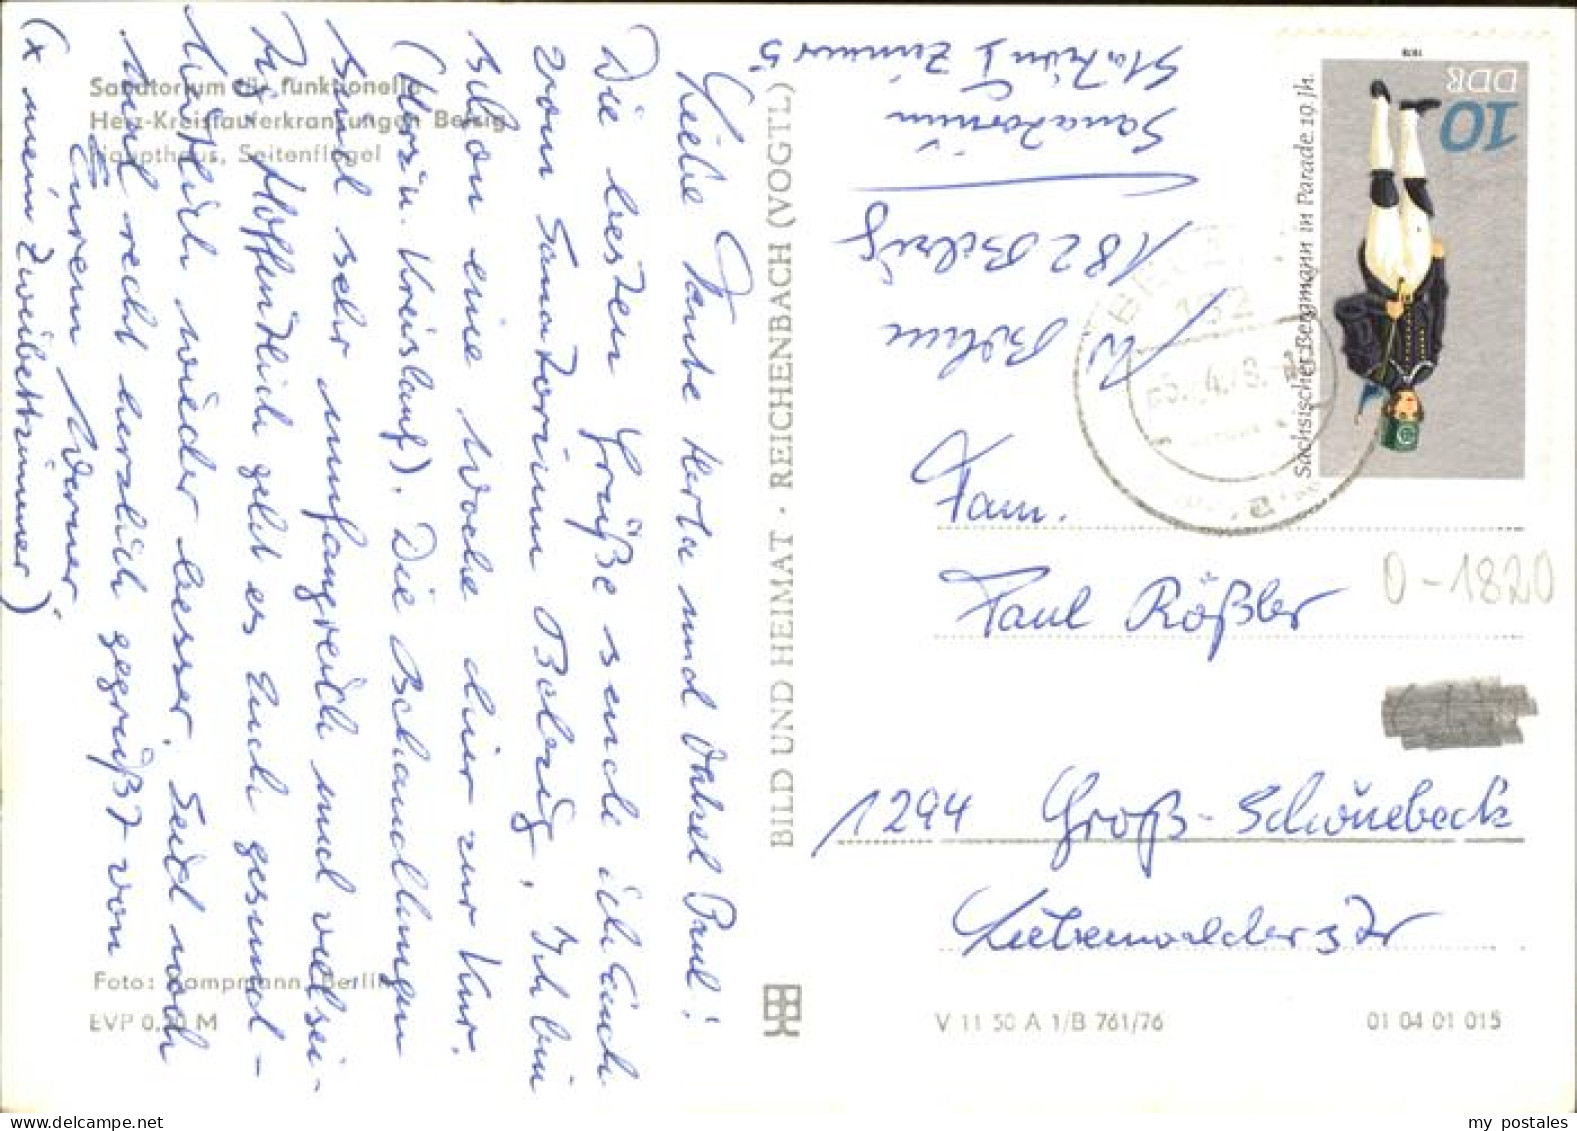 Sanatorium für funktionelle
Herz-Kreislauferkrankungen Belzig
Haupthaus, Seitenflügel
Liebe Tante Herta und Onkel Paul!
Die besten Grüße sende ich Euch
vom Sanatorium Belzig. Ich bin
schon eine Woche hier zur Kur.
(Herz u. Kreislauf). Die Behandlungen
sind sehr umfangreich und vielsei-
tig. Hoffentlich geht es Euch gesund-
heitlich wieder besser. Seid noch
recht herzlich gegrüßt von
Eurem Werner.
(x mein Zweibettzimmer)
Foto: Kampmann, Berlin
EVP 0,20 M
BILD UND HEIMAT · REICHENBACH (VOGTL)
182 Belzig
Sanatorium
Station I Zimmer 5
DDR
10
1978
Sächsischer Bergmann in Parade. 19. Jh.
182
Fam.
Paul Rößler
O-1820
1294 Groß-Schönebeck
Liebenwalder Str
V 11 50 A 1/B 761/76
01 04 01 015
my postales